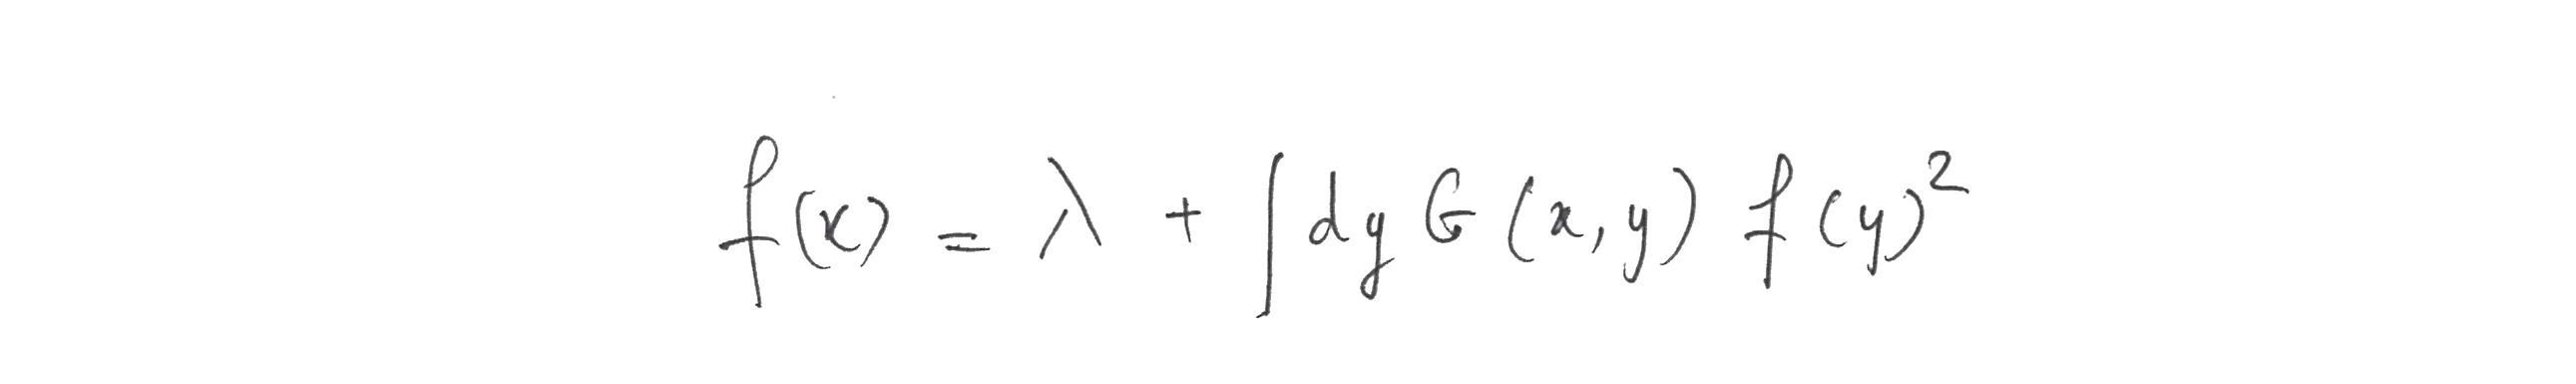 f(x) = λ + ∫dy G(x,y) f(y)²